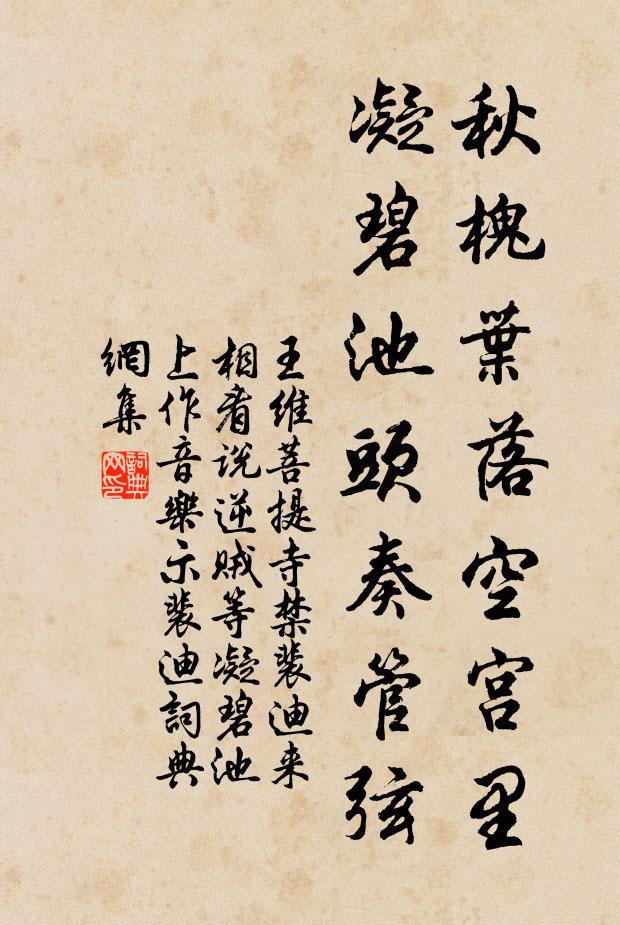 秋槐葉落空宫里
凝碧池頭奏管弦
王維菩提寺禁裴迪来
相看说逆贼等凝碧池
上作音樂示裴迪詞典
網集
詞典网印